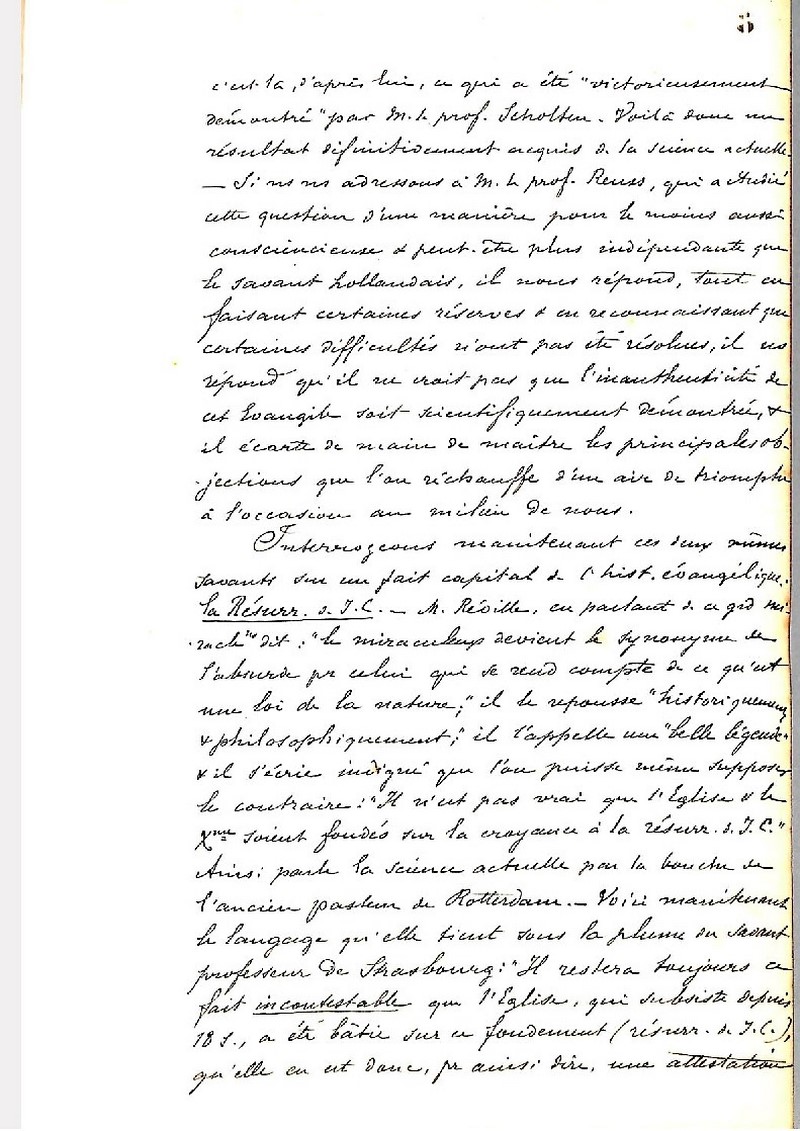 5
c'est là, d'après lui, ce qui a été "victorieusement
démontré" par M. le prof. Scholten. Voilà donc un
résultat définitivement acquis de la science actuelle.
— Si ns ns adressons à M. le prof. Reuss, qui a étudié
cette question d'une manière pour le moins aussi
consciencieuse & peut-être plus indépendante que
le savant hollandais, il nous répond, tout en
faisant certaines réserves & en reconnaissant que
certaines difficultés n'ont pas été résolues, il ns
répond qu'il ne croit pas que l'inauthenticité de
cet Evangile soit scientifiquement démontrée, &
il écarte de main de maître les principales ob-
-jections que l'on réchauffe d'un air de triomphe
à l'occasion au milieu de nous.
Interrogeons maintenant ces deux mêmes
savants sur un fait capital de l'hist. évangélique:
la Résurr. d. J.C. — M. Réville, en parlant de ce grd mi-
-racle dit: "le miraculeux devient le synonyme de
l'absurde pr celui qui se rend compte de ce qu'est
une loi de la nature;" il le repousse "historiquement
& philosophiquement;" il l'appelle une "belle légende"
& il s'écrie indigné que l'on puisse même supposer
le contraire: "Il n'est pas vrai que l'Eglise & le
Xme soient fondés sur la croyance à la résurr. d. J.C."
Ainsi parle la science actuelle par la bouche de
l'ancien pasteur de Rotterdam. — Voici maintenant
le langage qu'elle tient sous la plume du savant
professeur de Strasbourg: "Il restera toujours ce
fait incontestable que l'Eglise, qui subsiste depuis
18 s., a été bâtie sur ce fondement (résurr. d. J.C.),
qu'elle en est donc, pr ainsi dire, une attestation